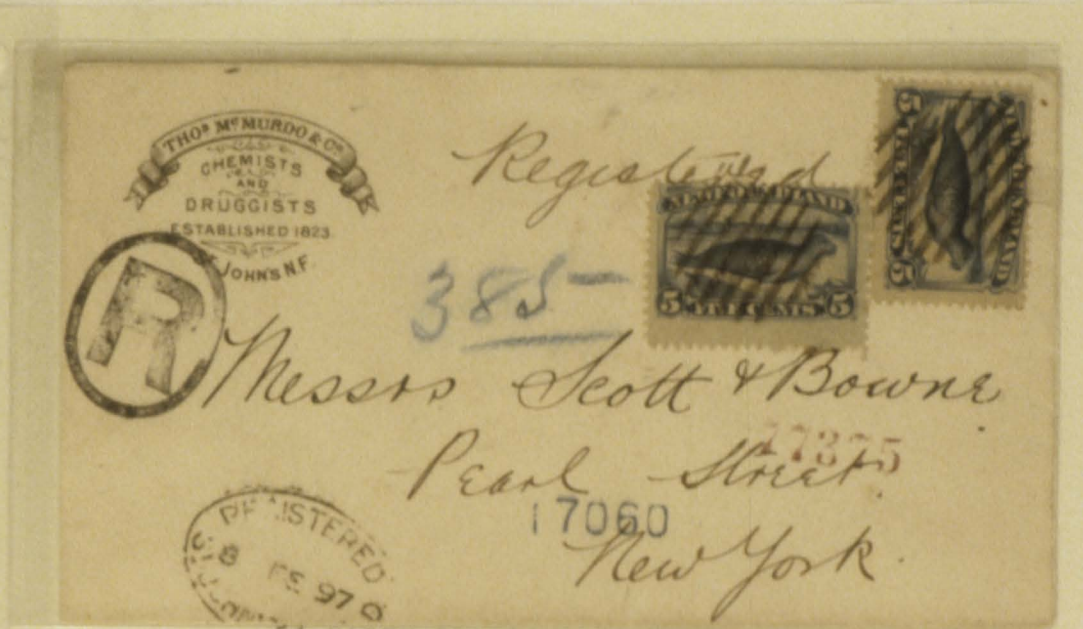 THOS McMURDO & Co
CHEMISTS
AND
DRUGGISTS
ESTABLISHED 1823
ST JOHN'S N.F.
Registered
NEWFOUNDLAND
5 FIVE CENTS 5
NEWFOUNDLAND
5 FIVE CENTS 5
385-
R
Messrs Scott & Bowne
Pearl Street.
17375
17060
New York.
REGISTERED
8 FE 97